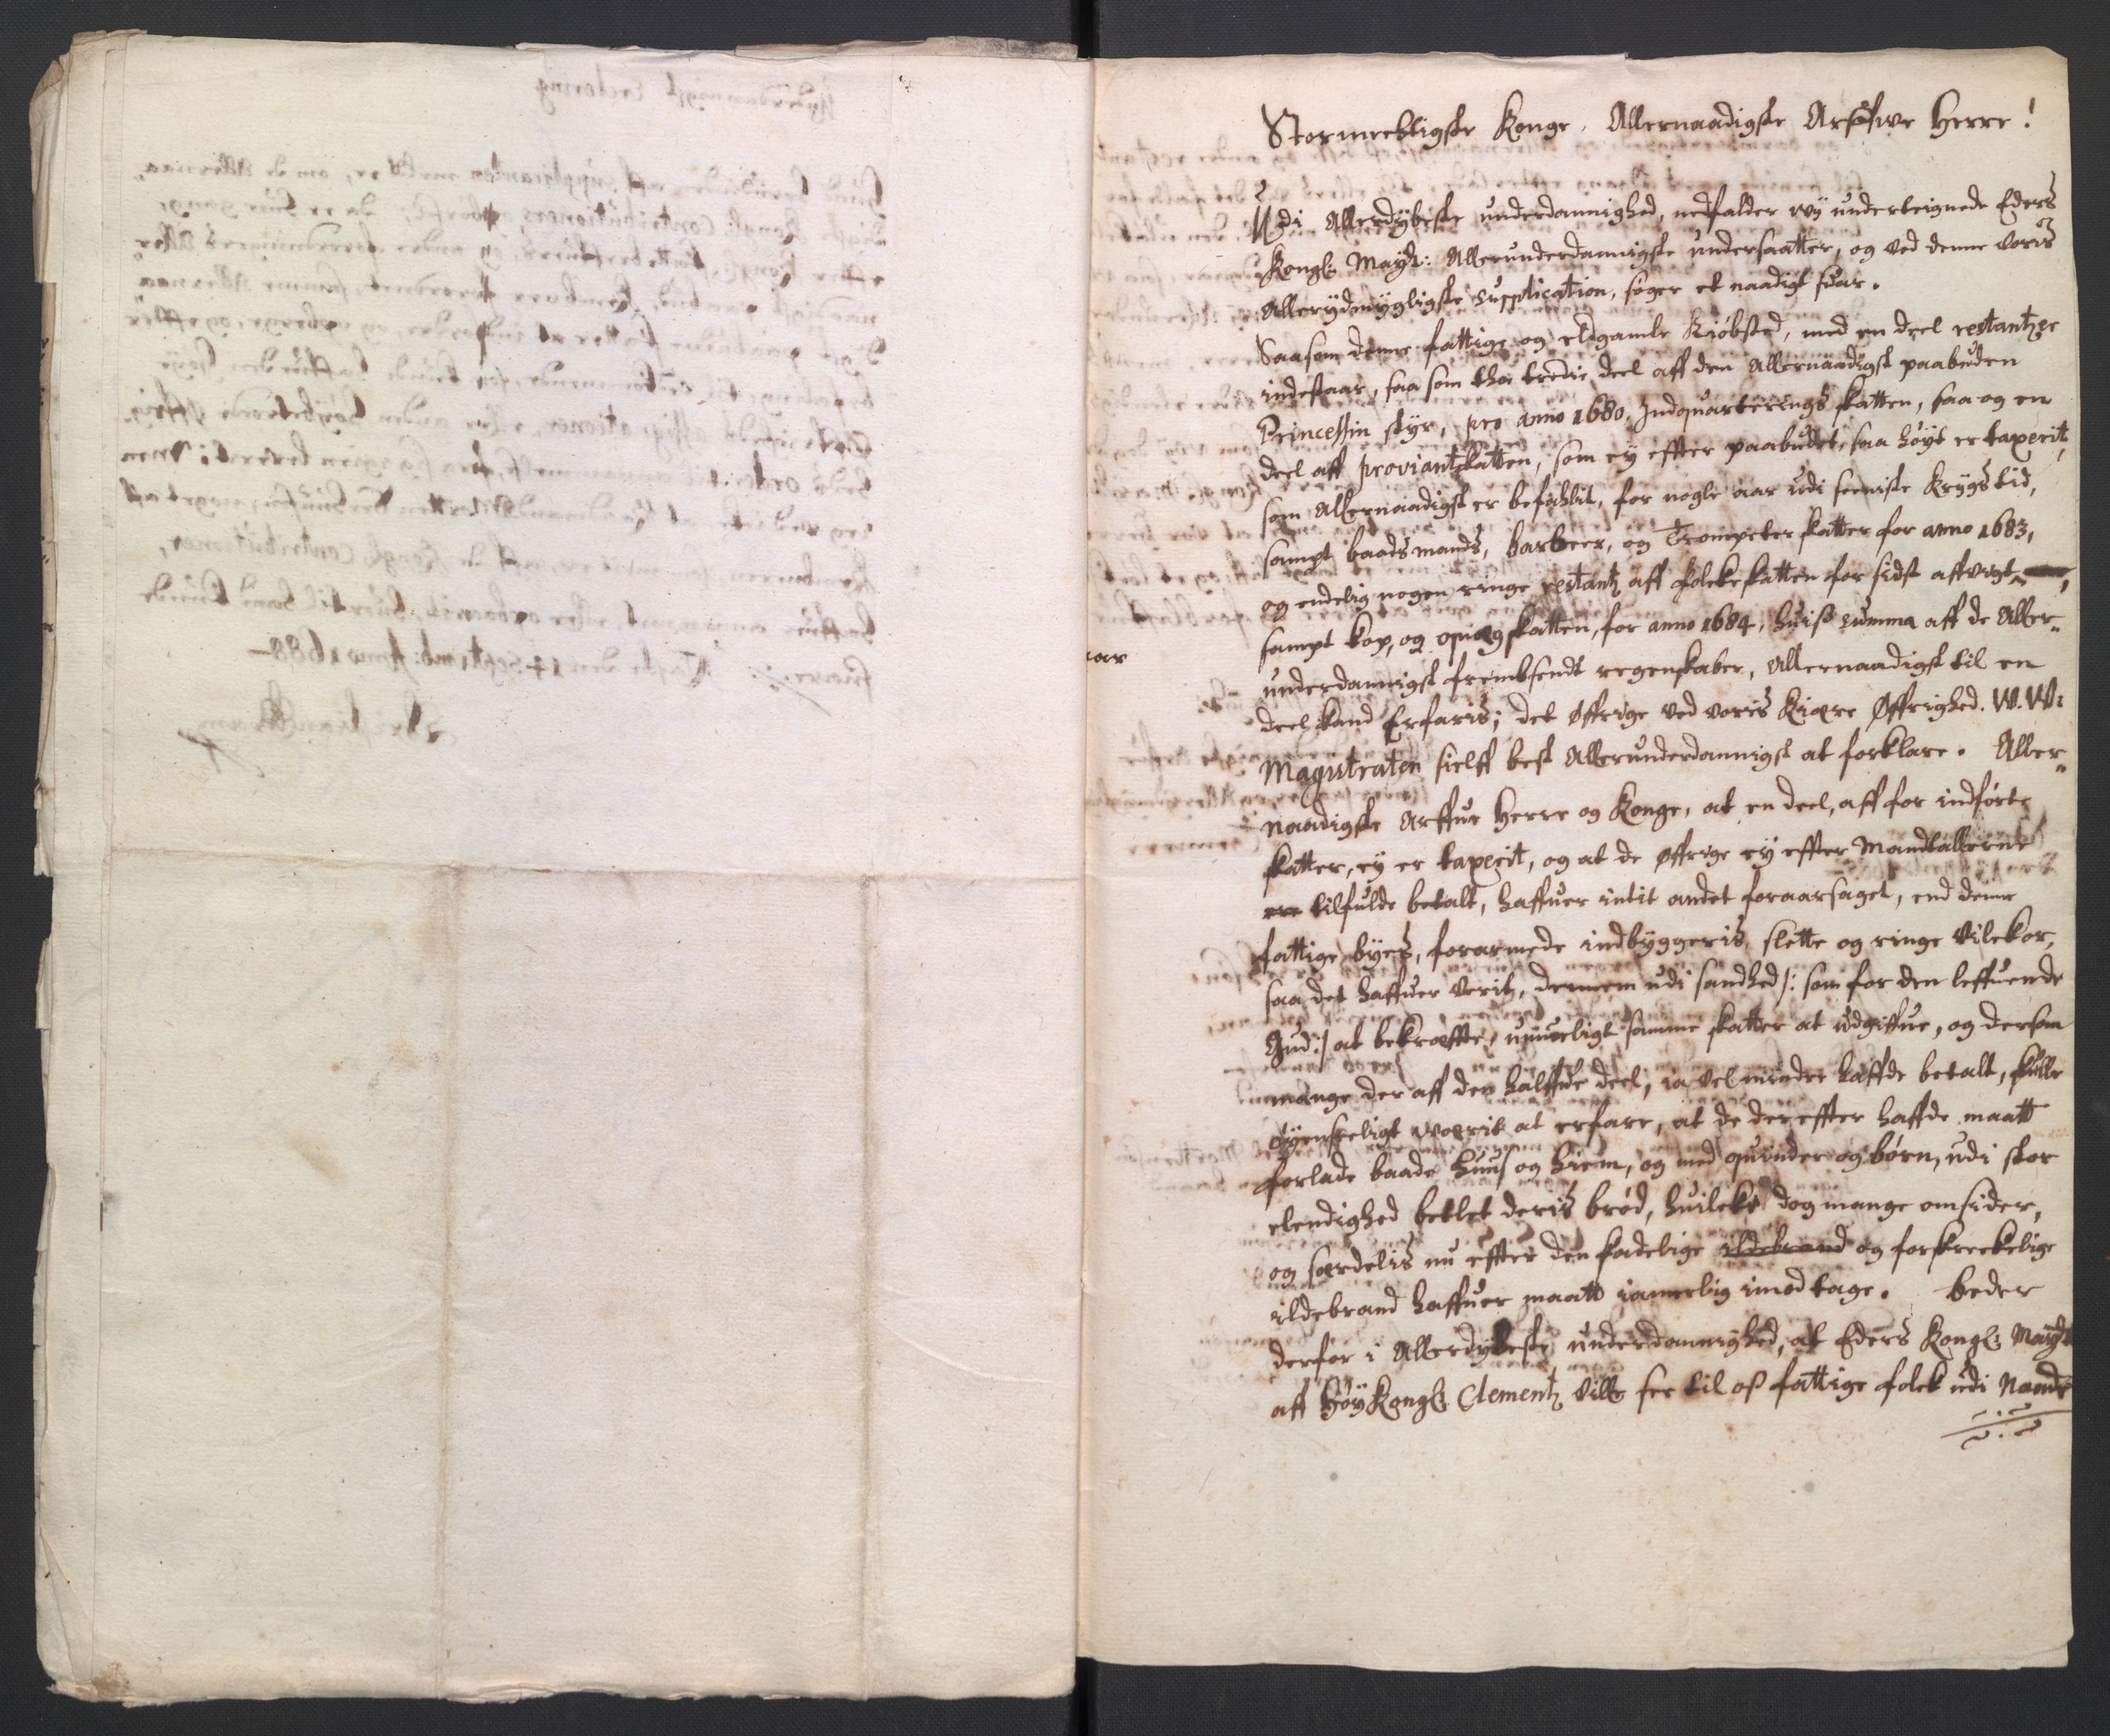 Stormechtigste Konge, Allernaadigste Arffwe Herre!
Udi Allerdybeste underdannighed, nedfalder wy underteignede Eders
Kongl: Mayts: Allerunderdannigste undersaatter, og ved denne voris
Allerydmygligste Supplication, søger et naadigt svar.
Saasom denne fattige og eldgamle Kiøbsted, med en deel restantzer
indestaar, saa som tho tredie deel aff den Allernaadigst paabuden
Princessin styr, pro anno 1680, Indqvarterings skatten, saa og en
deel aff proviantskatten, som ey effter paabudet, saa høyt er taxerit,
som Allernaadigst er befahlit, for nogle aar udi seeniste Krygs tid,
sampt baadsmands, barbeer, og Trompeter skatter for anno 1683,
og endelig nogen ringe restantz aff folckeskatten for sidst affvigt
aar
sampt kop, og qvægskatten, for anno 1684, huis summa aff de Aller-
underdannigst frembsendt regenskaber, Allernaadigst til en
deel kand Erfaris; det øffrige ved voris Kiære Øffrighed. W. W:
Magistraten sielff best Allerunderdannigst at forklare. Aller-
naadigste Arffue Herre og Konge, at en deel, aff for indførte
skatter, ey er taxerit, og at de øffrige ey effter Mandtallerne
ere tilfulde betalt, haffuer intit andet foraarsaget, end denne
fattige byes, forarmede indbyggeris, slette og ringe vilckor,
saa det haffuer verit, dennem udi sandhed /: som for den leffuende
Gud :/ at bekræffte, umueligt samme skatter at udgiffue, og dersom
mange der aff den halffue deel, ia vel mindre haffde betalt, skulle
øyenseeligt wærit at erfare, at de der effter haffde maatt
forlade baade huus og hiem, og med qvinder og børn, udi stor
elendighed betlet deris brød, huilcke dog mange omsider,
og særdelis nu effter den skadelige ildebrand og forskreckelige
ildebrand haffuer maatt iamerlig imodtage. beder
derfor i Allerdybeste underdannighed, at Eders Kongl: Mayt
aff høyKongl: Clementz ville see til os fattige folck udi Naade